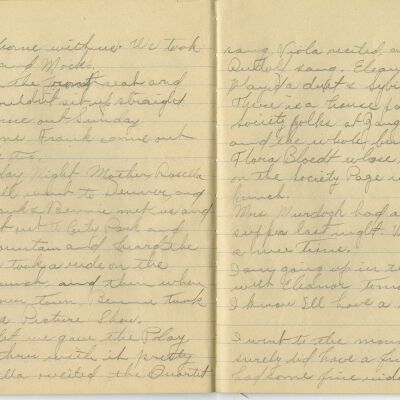 home with us. We took
and Mocks.
the front seat and
ouldn't set up straight
me out Sunday
me Frank come out
day Night Mother Rosella
all went to Denver and
Bennie met us and
City Park and
ountain and heard the
took a ride on the
aunch, and then when
own town, Bennie took
a Picture Show.
we gave the Play
thru with it pretty
ella recited. the Quartet
sang, Viola recited a
sang. Elean
played a duet &
There is a house pa
Society folks at
and the whole bu
Flora Bloedt whose
on the Society Page
bunch.
Mrs. Murdoch had a
supper last night.
a nice time.
I am going up in th
with Eleanor tomo
I know I'll have a
I went to the moun
surely did have a fin
had some fine